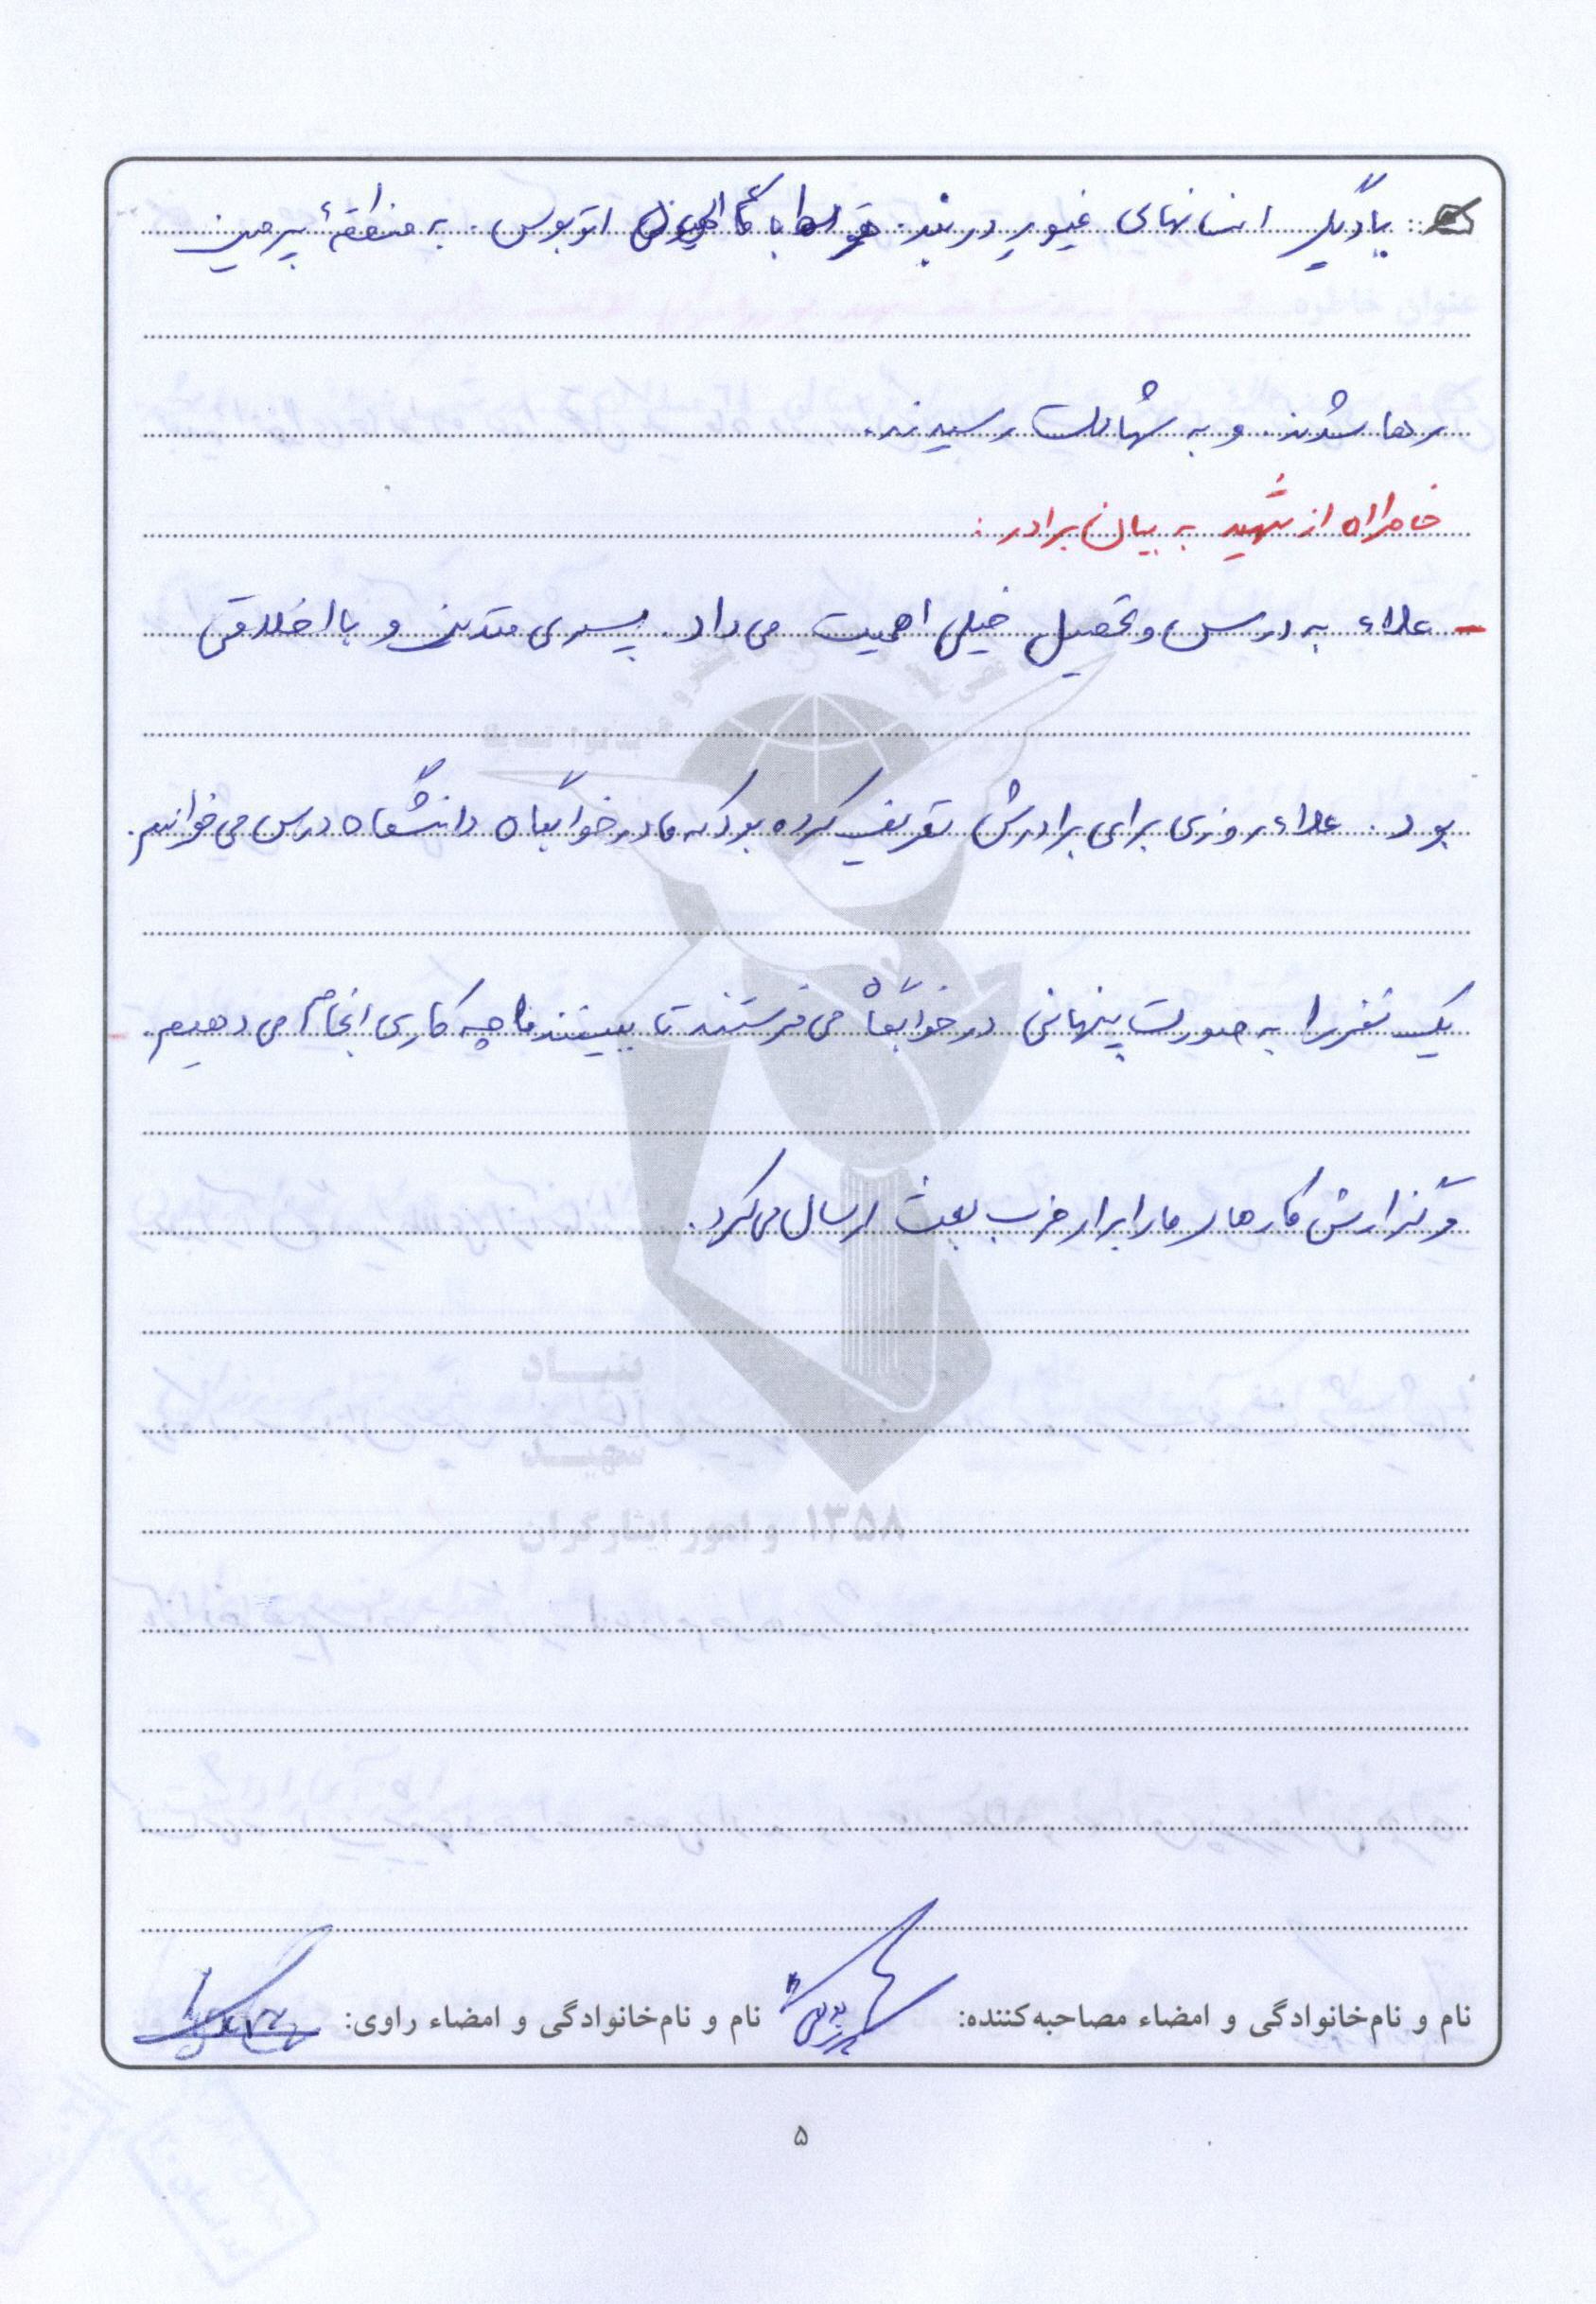 با دیگر انسانهای غیور دربند. اتوبوس. به منطقهٔ
رها شدند. و به شهادت رسیدند.
خاطراه از شهید به بیان برادر:
- علاء به درس و تحصیل خیلی اهمیت می داد. پسری متدین و با اخلاقی
بود. علاء روزی برای برادرش تعریف کرده بود که ما در خوابگاه دانشگاه درس می خوانیم.
یک نفر را به صورت پنهانی در خوابگاه می فرستند تا ببینند ما چه کاری انجام می دهیم.
و گزارش کارهای ما را برای حزب بعث ارسال می کرد.
بنیاد
شهید
۱۳۵۸ و امور ایثارگران
نام و نام‌خانوادگی و امضاء مصاحبه‌کننده: نام و نام‌خانوادگی و امضاء راوی:
۵